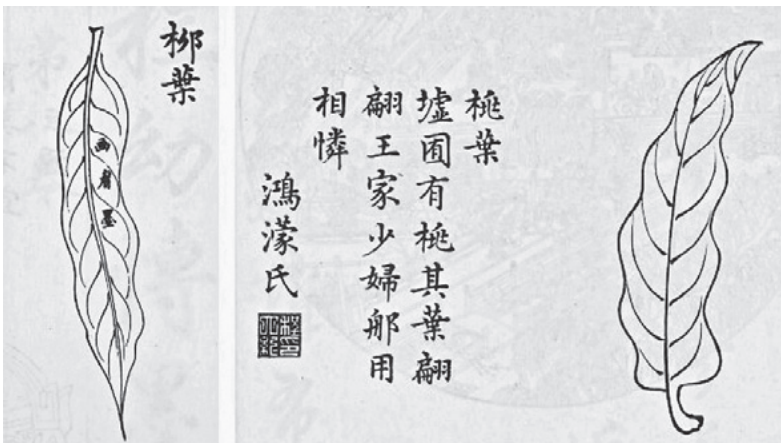 桃葉
墟囿有桃其葉翩
翩王家少婦那用
相憐
鴻濛氏
柳葉